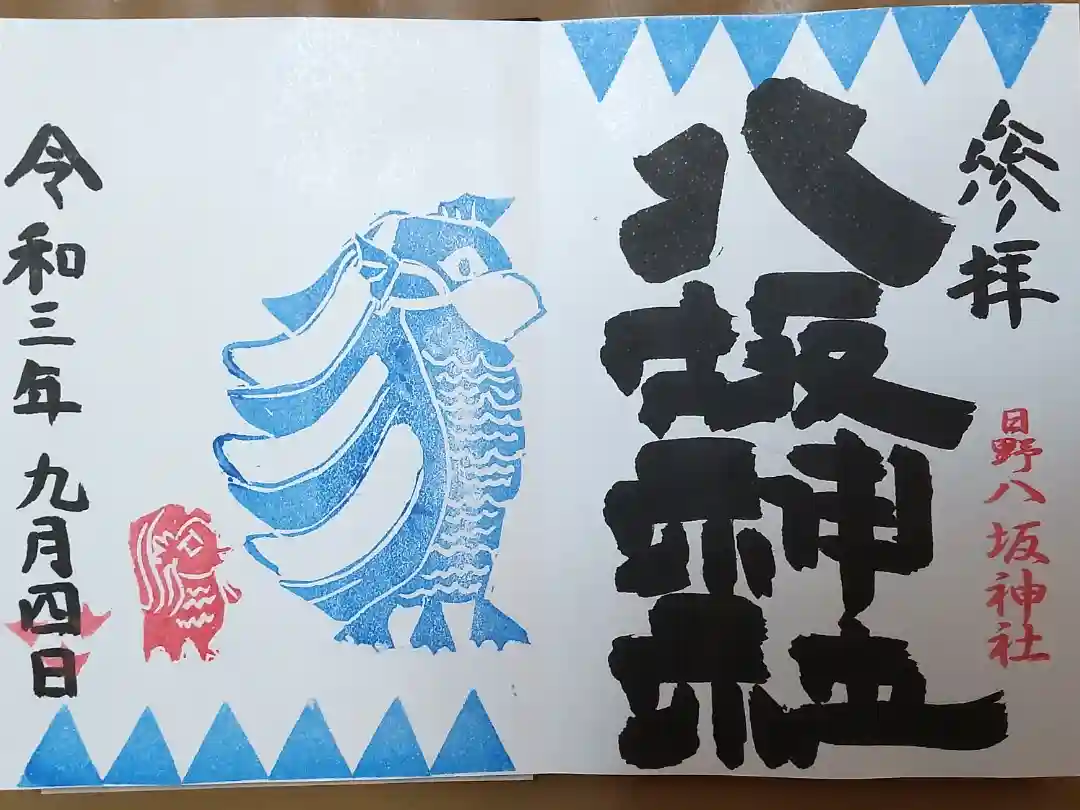 參拝
八坂神社
日野八坂神社
令和三年 九月四日